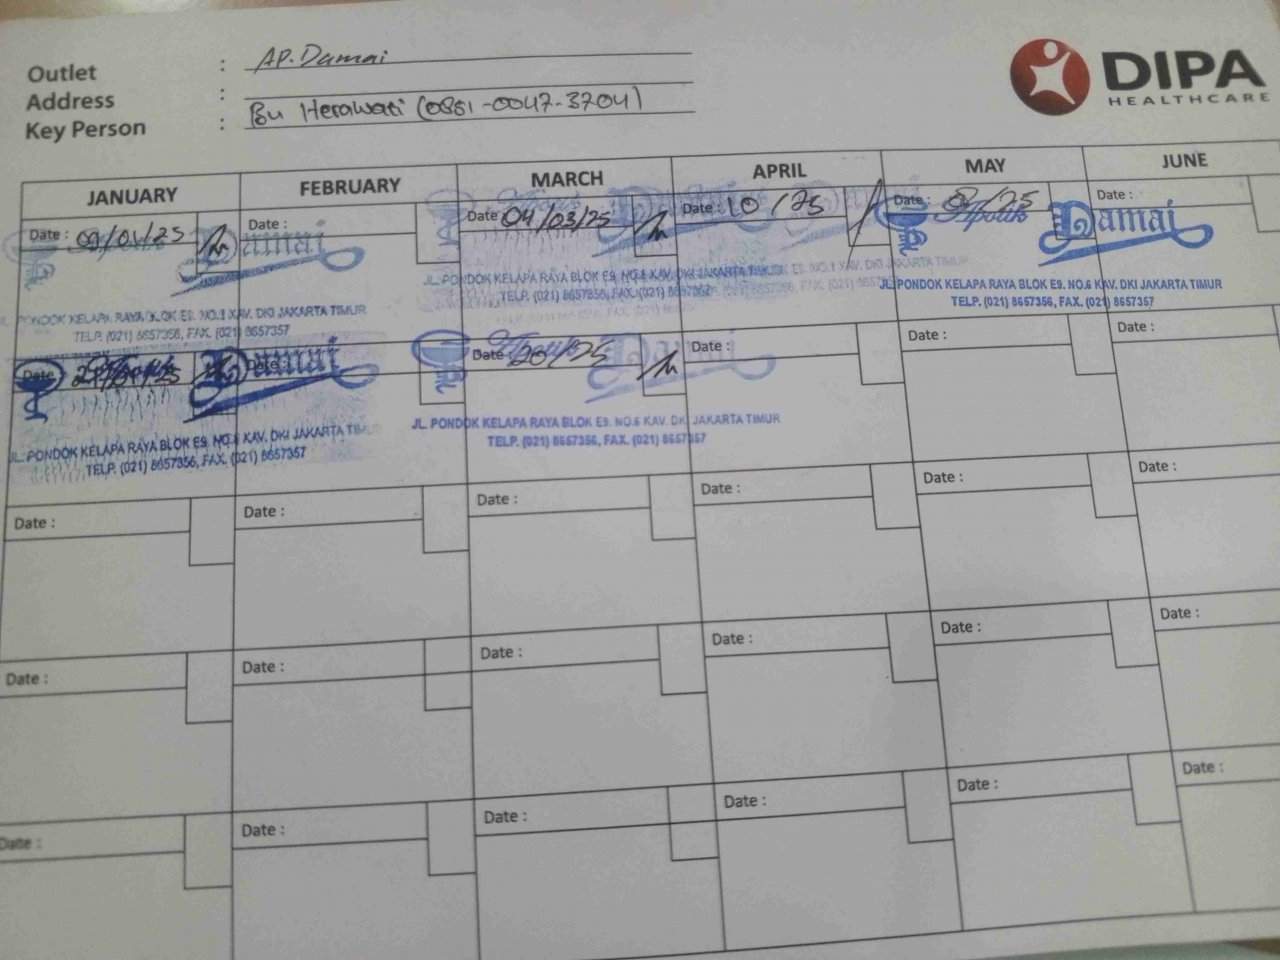 Outlet : AP. Damai
Address :
Key Person : Bu Herawati (0851-0047-3704)
DIPA
HEALTHCARE
JANUARY FEBRUARY MARCH APRIL MAY JUNE
Date : 09/01/25 Date : Date 04/03/25 Date : 10 /25 Date : /25 Date :
Damai Apotik Damai
JL. PONDOK KELAPA RAYA BLOK E9. NO.6 KAV. DKI JAKARTA TIMUR
TELP. (021) 8657356, FAX. (021) 8657357
JL. PONDOK KELAPA RAYA BLOK E9. NO.6 KAV. DKI JAKARTA
TELP. (021) 8657356, FAX. (021) 8657357
JL. PONDOK KELAPA RAYA BLOK E9. NO.6 KAV. DKI JAKARTA TIMUR
TELP. (021) 8657356, FAX. (021) 8657357
Date Damai Date : Date 20/ /25 Damai Date : Date : Date :
JL. PONDOK KELAPA RAYA BLOK E9. NO.6 KAV. DKI JAKARTA TIMUR
TELP. (021) 8657356, FAX. (021) 8657357
JL. PONDOK KELAPA RAYA BLOK E9. NO.6 KAV. DKI JAKARTA TIMUR
TELP. (021) 8657356, FAX. (021) 8657357
Date : Date : Date : Date : Date : Date :
Date : Date : Date : Date : Date : Date :
Date : Date : Date : Date : Date : Date :